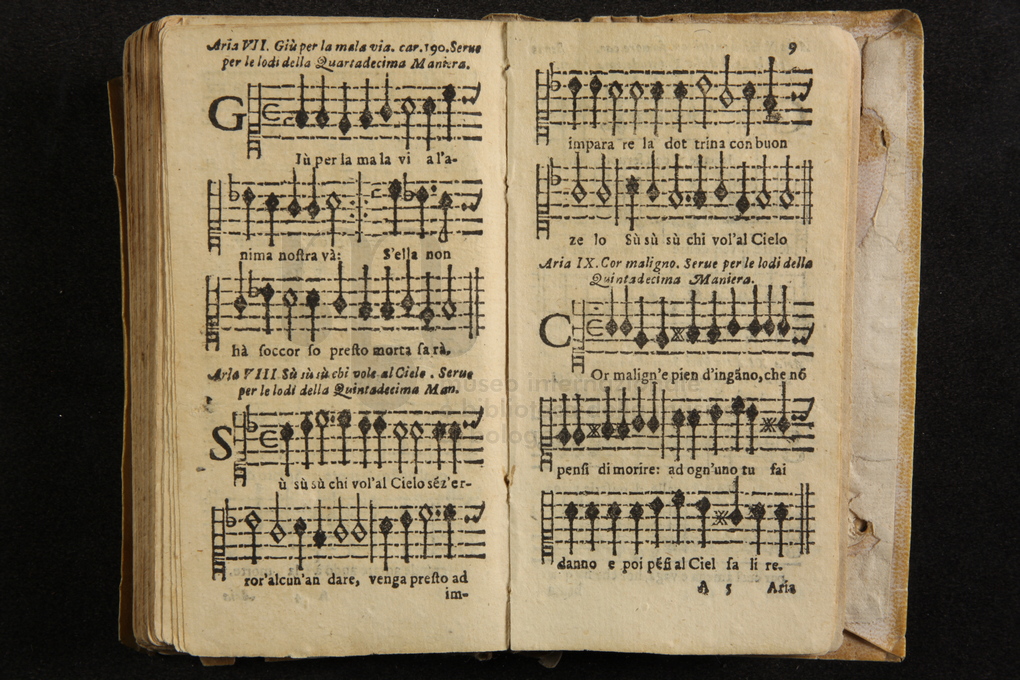 Aria VII. Giù per la mala via. car. 190. Serue
per le lodi della Quartadecima Maniera.
G
Iù per la ma la vi a l'a-
nima noſtra và: S'ella non
hà ſoccor ſo preſto morta ſa rà.
Aria VIII. Sù sù sù chi vole al Cielo. Serue
per le lodi della Quintadecima Man.
S
ù sù sù chi vol'al Cielo séz'er-
ror'alcun'an dare, venga preſto ad
im-
9
impara re la dot trina con buon
ze lo Sù sù sù chi vol'al Cielo
Aria IX. Cor maligno. Serue per le lodi della
Quintadecima Maniera.
C
Or malign'e pien d'ingāno, che nō
penſi di morire: ad ogn'uno tu fai
danno e poi pēſi al Ciel ſa li re.
A 5 Aria